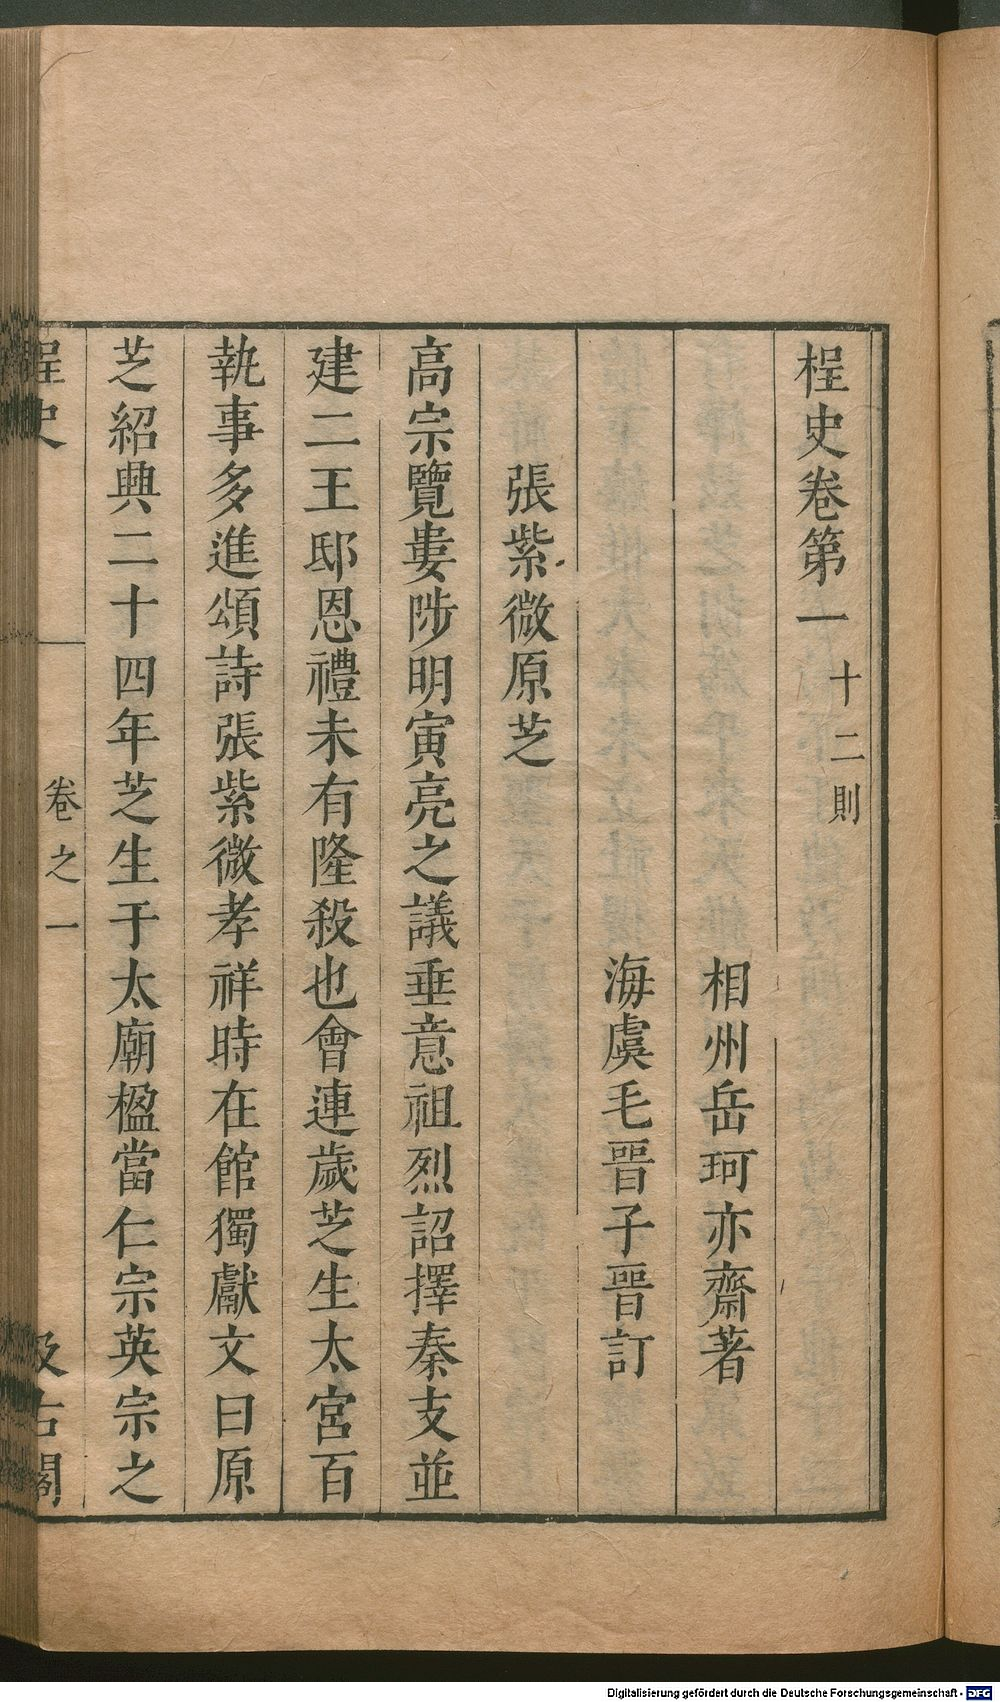 桯史卷第一 十二則
相州岳珂亦齋著
海虞毛晉子晉訂
張紫微原芝
高宗覽婁陟明寅亮之議垂意祖烈詔擇秦支並
建二王邸恩禮未有隆殺也會連歲芝生太宮百
執事多進頌詩張紫微孝祥時在館獨獻文曰原
芝紹興二十四年芝生于太廟楹當仁宗英宗之
桯史
卷之一
汲古閣
Digitalisierung gefördert durch die Deutsche Forschungsgemeinschaft - DFG